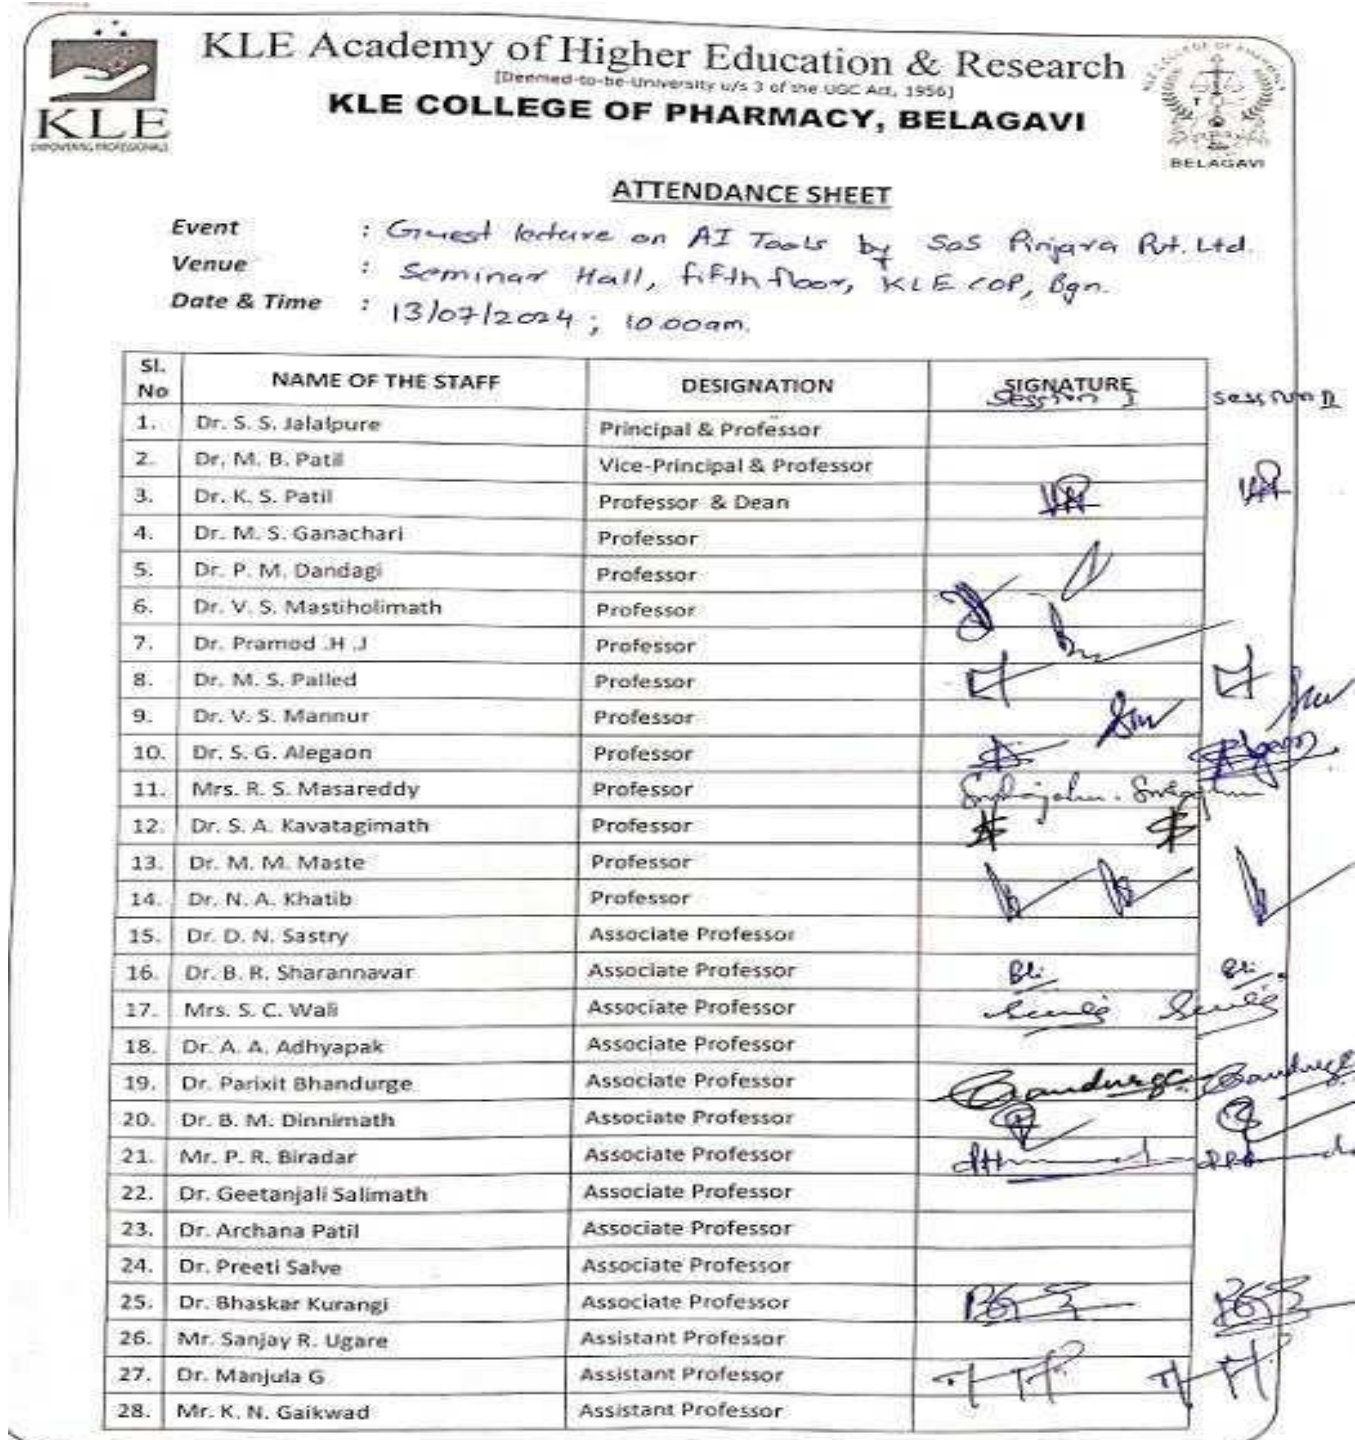 KLE Academy of Higher Education & Research
[Deemed-to-be-University u/s 3 of the UGC Act, 1956]
KLE COLLEGE OF PHARMACY, BELAGAVI
KLE
EMPOWERING PROFESSIONALS
KLE COLLEGE OF PHARMACY
BELAGAVI
ATTENDANCE SHEET
Event : Guest lecture on AI Tools by SoS Pinjara Pvt. Ltd.
Venue : Seminar Hall, fifth floor, KLE COP, Bgn.
Date & Time : 13/07/2024; 10.00am.
Sl. No NAME OF THE STAFF DESIGNATION SIGNATURE Session I Session II
1. Dr. S. S. Jalalpure Principal & Professor
2. Dr. M. B. Patil Vice-Principal & Professor
3. Dr. K. S. Patil Professor & Dean
4. Dr. M. S. Ganachari Professor
5. Dr. P. M. Dandagi Professor
6. Dr. V. S. Mastiholimath Professor
7. Dr. Pramod .H .J Professor
8. Dr. M. S. Palled Professor
9. Dr. V. S. Mannur Professor
10. Dr. S. G. Alegaon Professor
11. Mrs. R. S. Masareddy Professor
12. Dr. S. A. Kavatagimath Professor
13. Dr. M. M. Maste Professor
14. Dr. N. A. Khatib Professor
15. Dr. D. N. Sastry Associate Professor
16. Dr. B. R. Sharannavar Associate Professor
17. Mrs. S. C. Wali Associate Professor
18. Dr. A. A. Adhyapak Associate Professor
19. Dr. Parixit Bhandurge Associate Professor
20. Dr. B. M. Dinnimath Associate Professor
21. Mr. P. R. Biradar Associate Professor
22. Dr. Geetanjali Salimath Associate Professor
23. Dr. Archana Patil Associate Professor
24. Dr. Preeti Salve Associate Professor
25. Dr. Bhaskar Kurangi Associate Professor
26. Mr. Sanjay R. Ugare Assistant Professor
27. Dr. Manjula G Assistant Professor
28. Mr. K. N. Gaikwad Assistant Professor